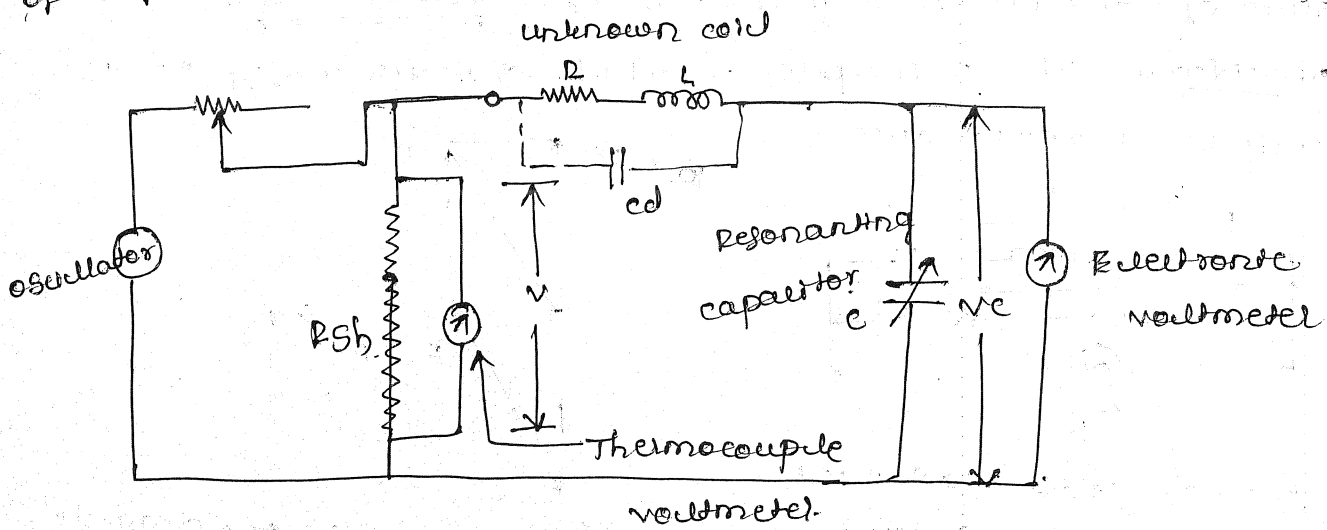 unknown coil
R
L
cd
V
oscillator
Rsh
Resonanting
capacitor
c
Vc
Electronic
voltmeter
Thermocouple
voltmeter.